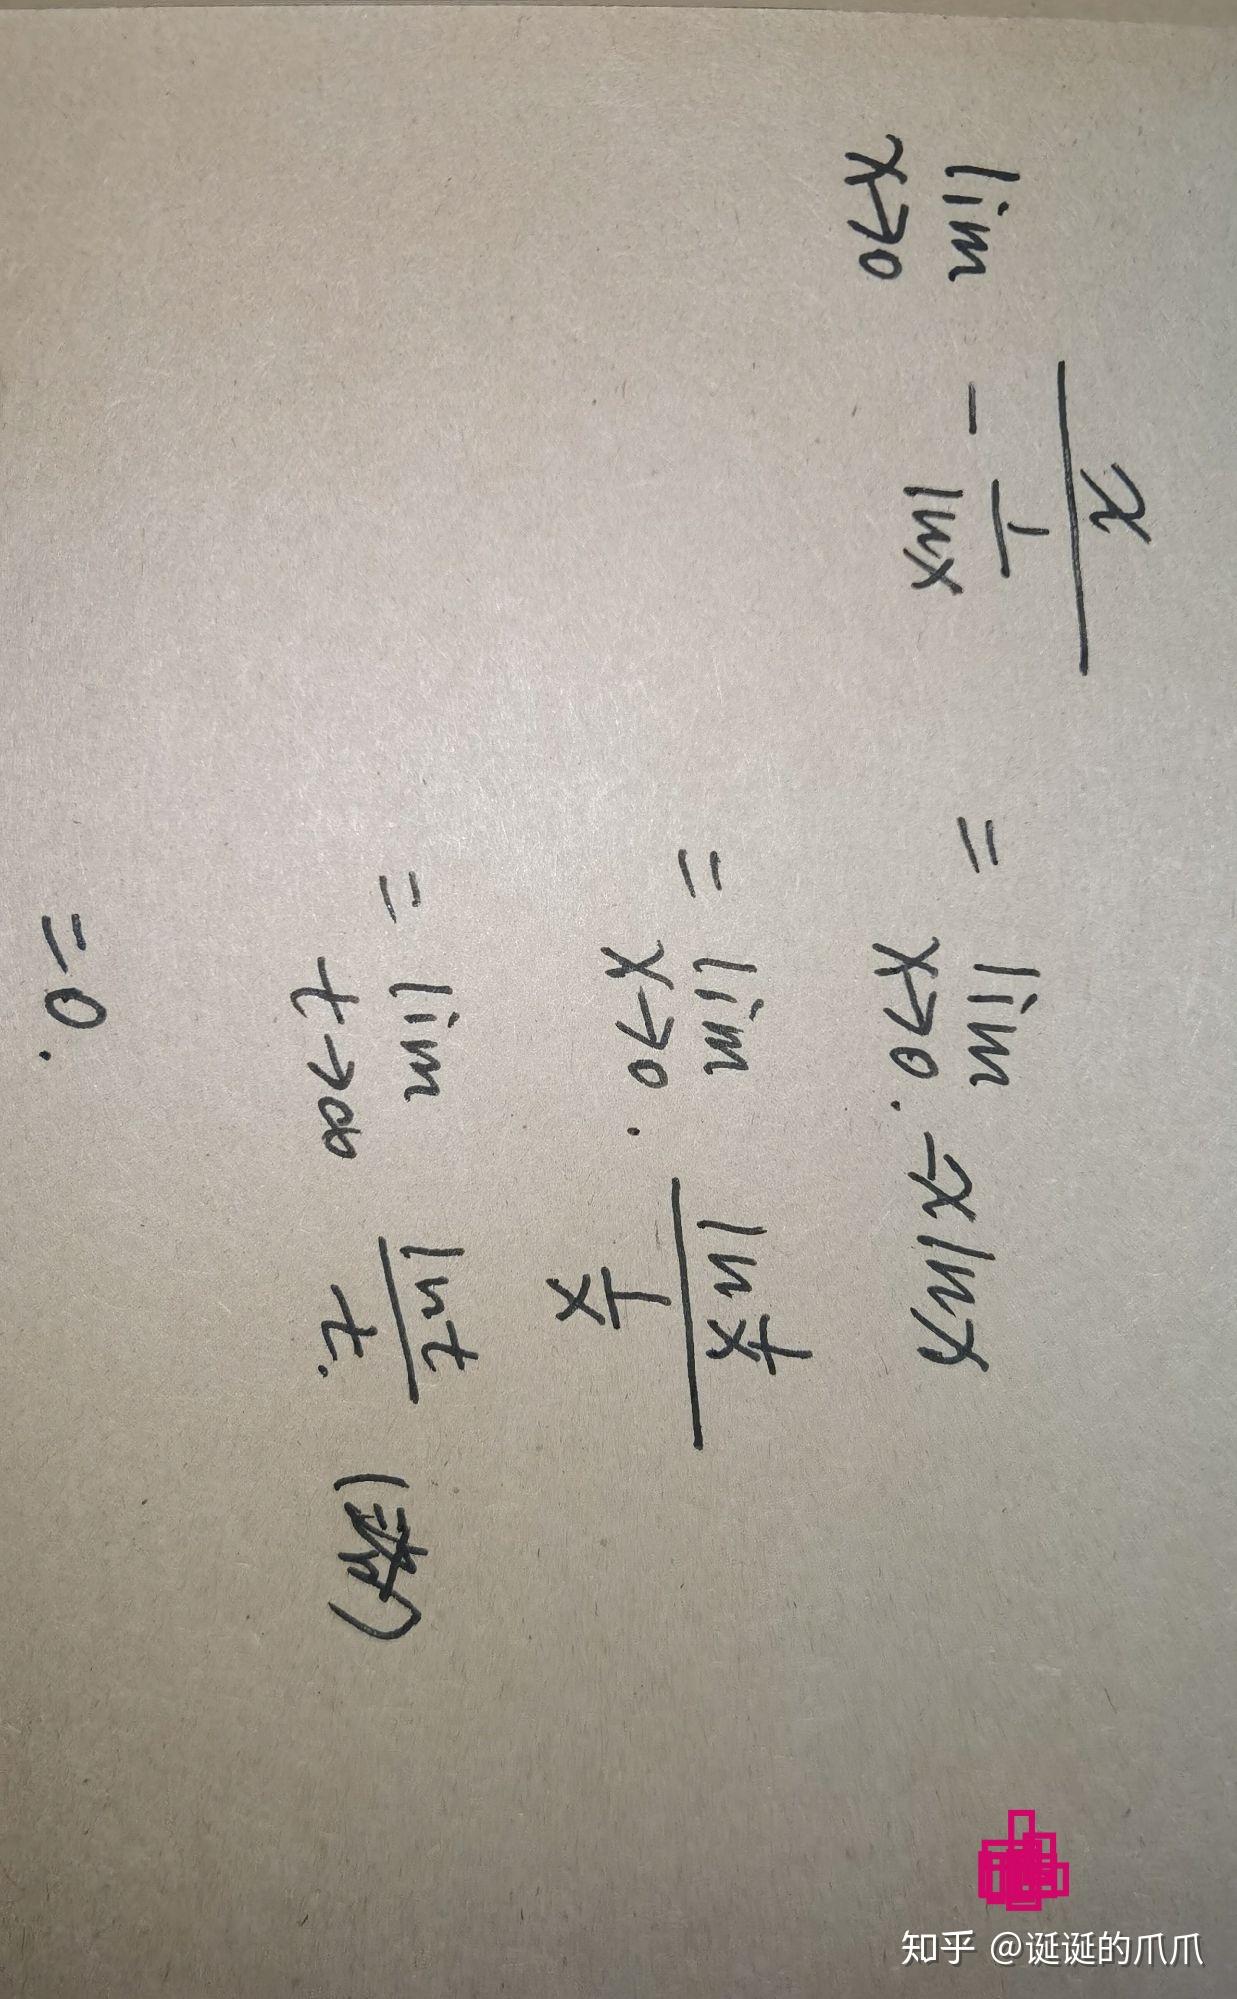 lim x→0 x / (-1/lnx) = lim x→0. -x lnx
= lim x→0. ln 1/x / (1/x)
= lim t→∞ ln t / t.
= 0.
知乎 @诞诞的爪爪